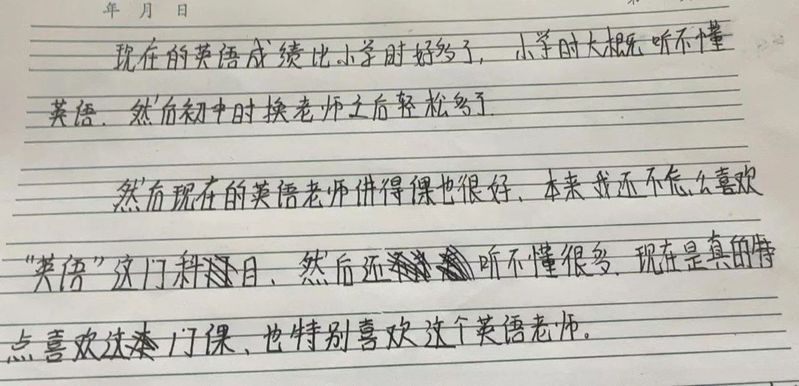 年 月 日
现在的英语成绩比小学时好多了，小学时大概听不懂
英语．然后初中时换老师之后轻松多了
然后现在的英语老师讲得课也很好、本来我还不怎么喜欢
“英语”这门科目、然后还听不懂很多．现在是真的特
点喜欢这门课、也特别喜欢这个英语老师。